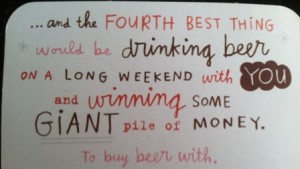 ...and the FOURTH BEST THING
would be drinking beer
ON A LONG WEEKEND with YOU
and winning SOME
GiANT pile of MONEY.
To buy beer with.